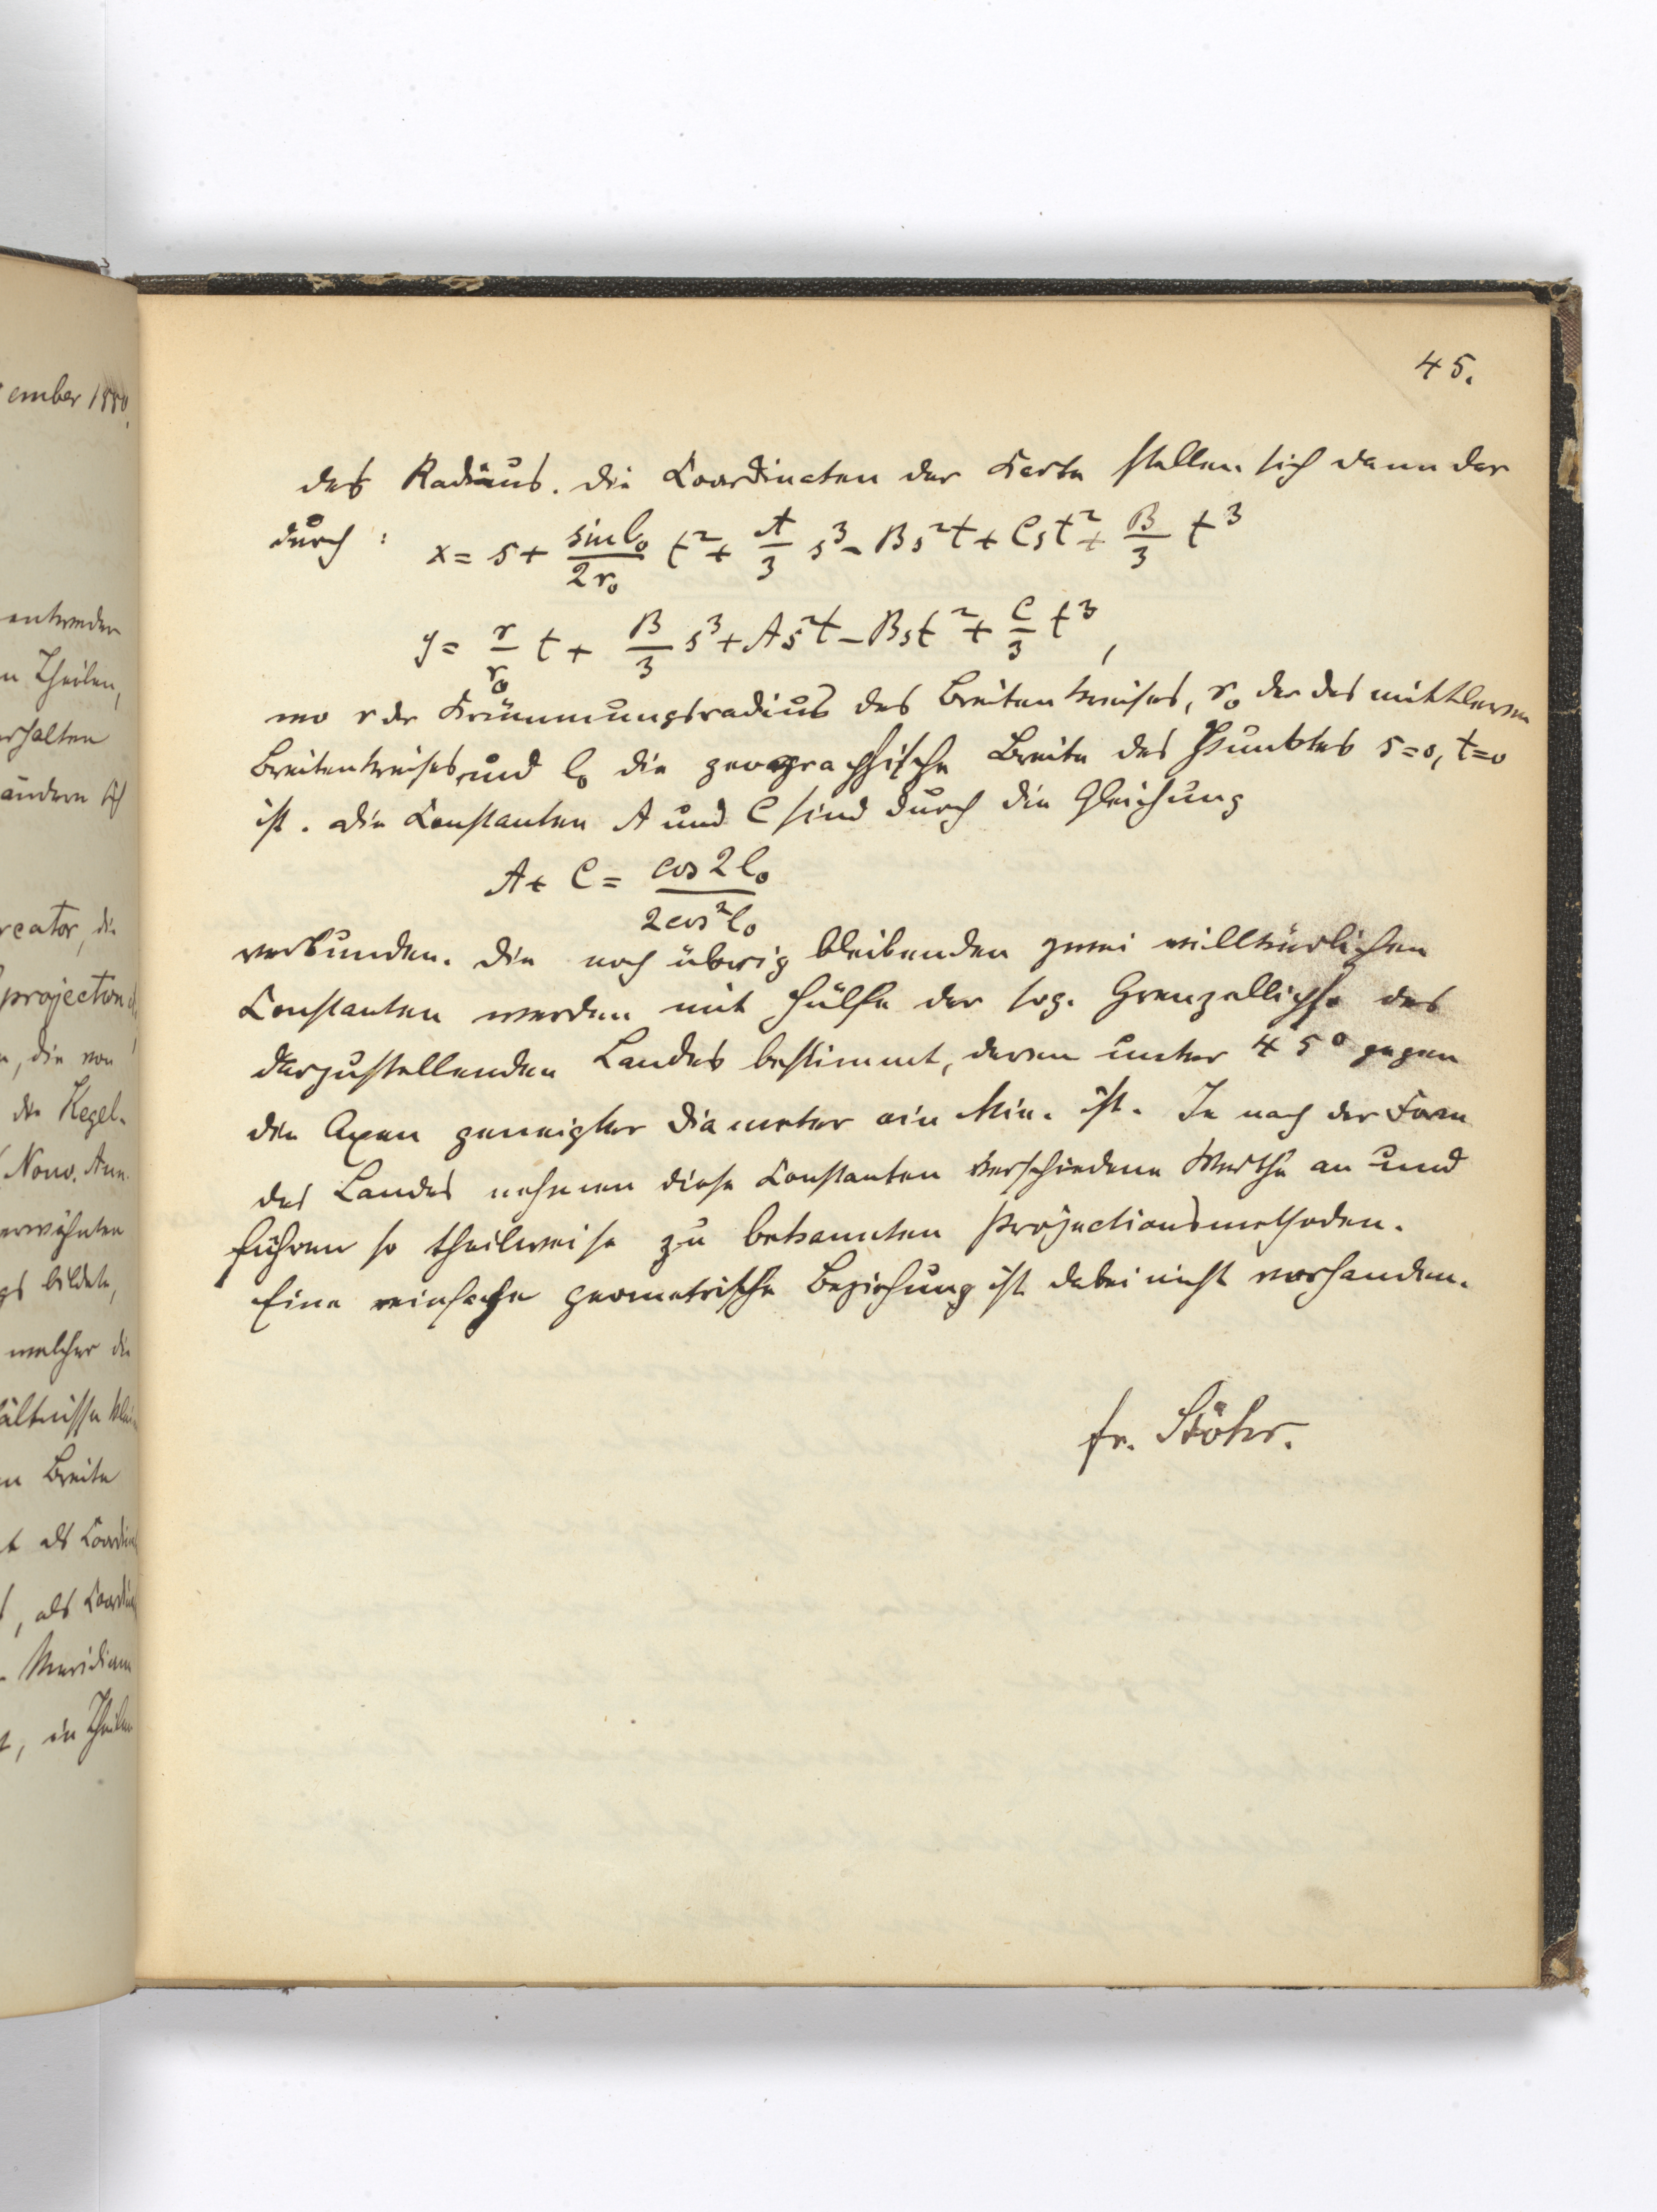 ember 1880.
entweder
n Theilen,
rhalten
ändern sich
rcator, die
projection
n, die von
die Kegel-
Nouv. Ann.
erwähnten
gs bildete,
welcher die
ältnisse
n Breite
t als Coordin
, als Coordin
Meridians
t, in Theilen
45.
des Radius. Die Coordinaten der Karte stellen sich dann dar
durch : x = s + \frac{sin l_0}{2r_0} t^2 + \frac{A}{3} s^3 - B s^2 t + C s t^2 + \frac{B}{3} t^3
y = \frac{r}{r_0} t + \frac{B}{3} s^3 + A s^2 t - B s t^2 + \frac{C}{3} t^3 ,
wo r der Krümmungsradius des Breitenkreises, r_0 der des mittleren
Breitenkreises, und l_0 die geographische Breite des Punktes s=0, t=0
ist. Die Constanten A und C sind durch die Gleichung
A + C = \frac{cos 2 l_0}{2 cos^2 l_0}
verbunden. Die noch übrig bleibenden zwei willkürlichen
Constanten werden mit Hülfe der sog. Grenzellipse des
darzustellenden Landes bestimmt, deren unter 45° gegen
die Axen geneigter Diameter ein Min. ist. Je nach der Form
des Landes nehmen diese Constanten verschiedene Werthe an und
führen so theilweise zu bekannten Projectionsmethoden.
Eine einfache geometrische Beziehung ist dabei nicht vorhanden.
Fr. Stöhr.